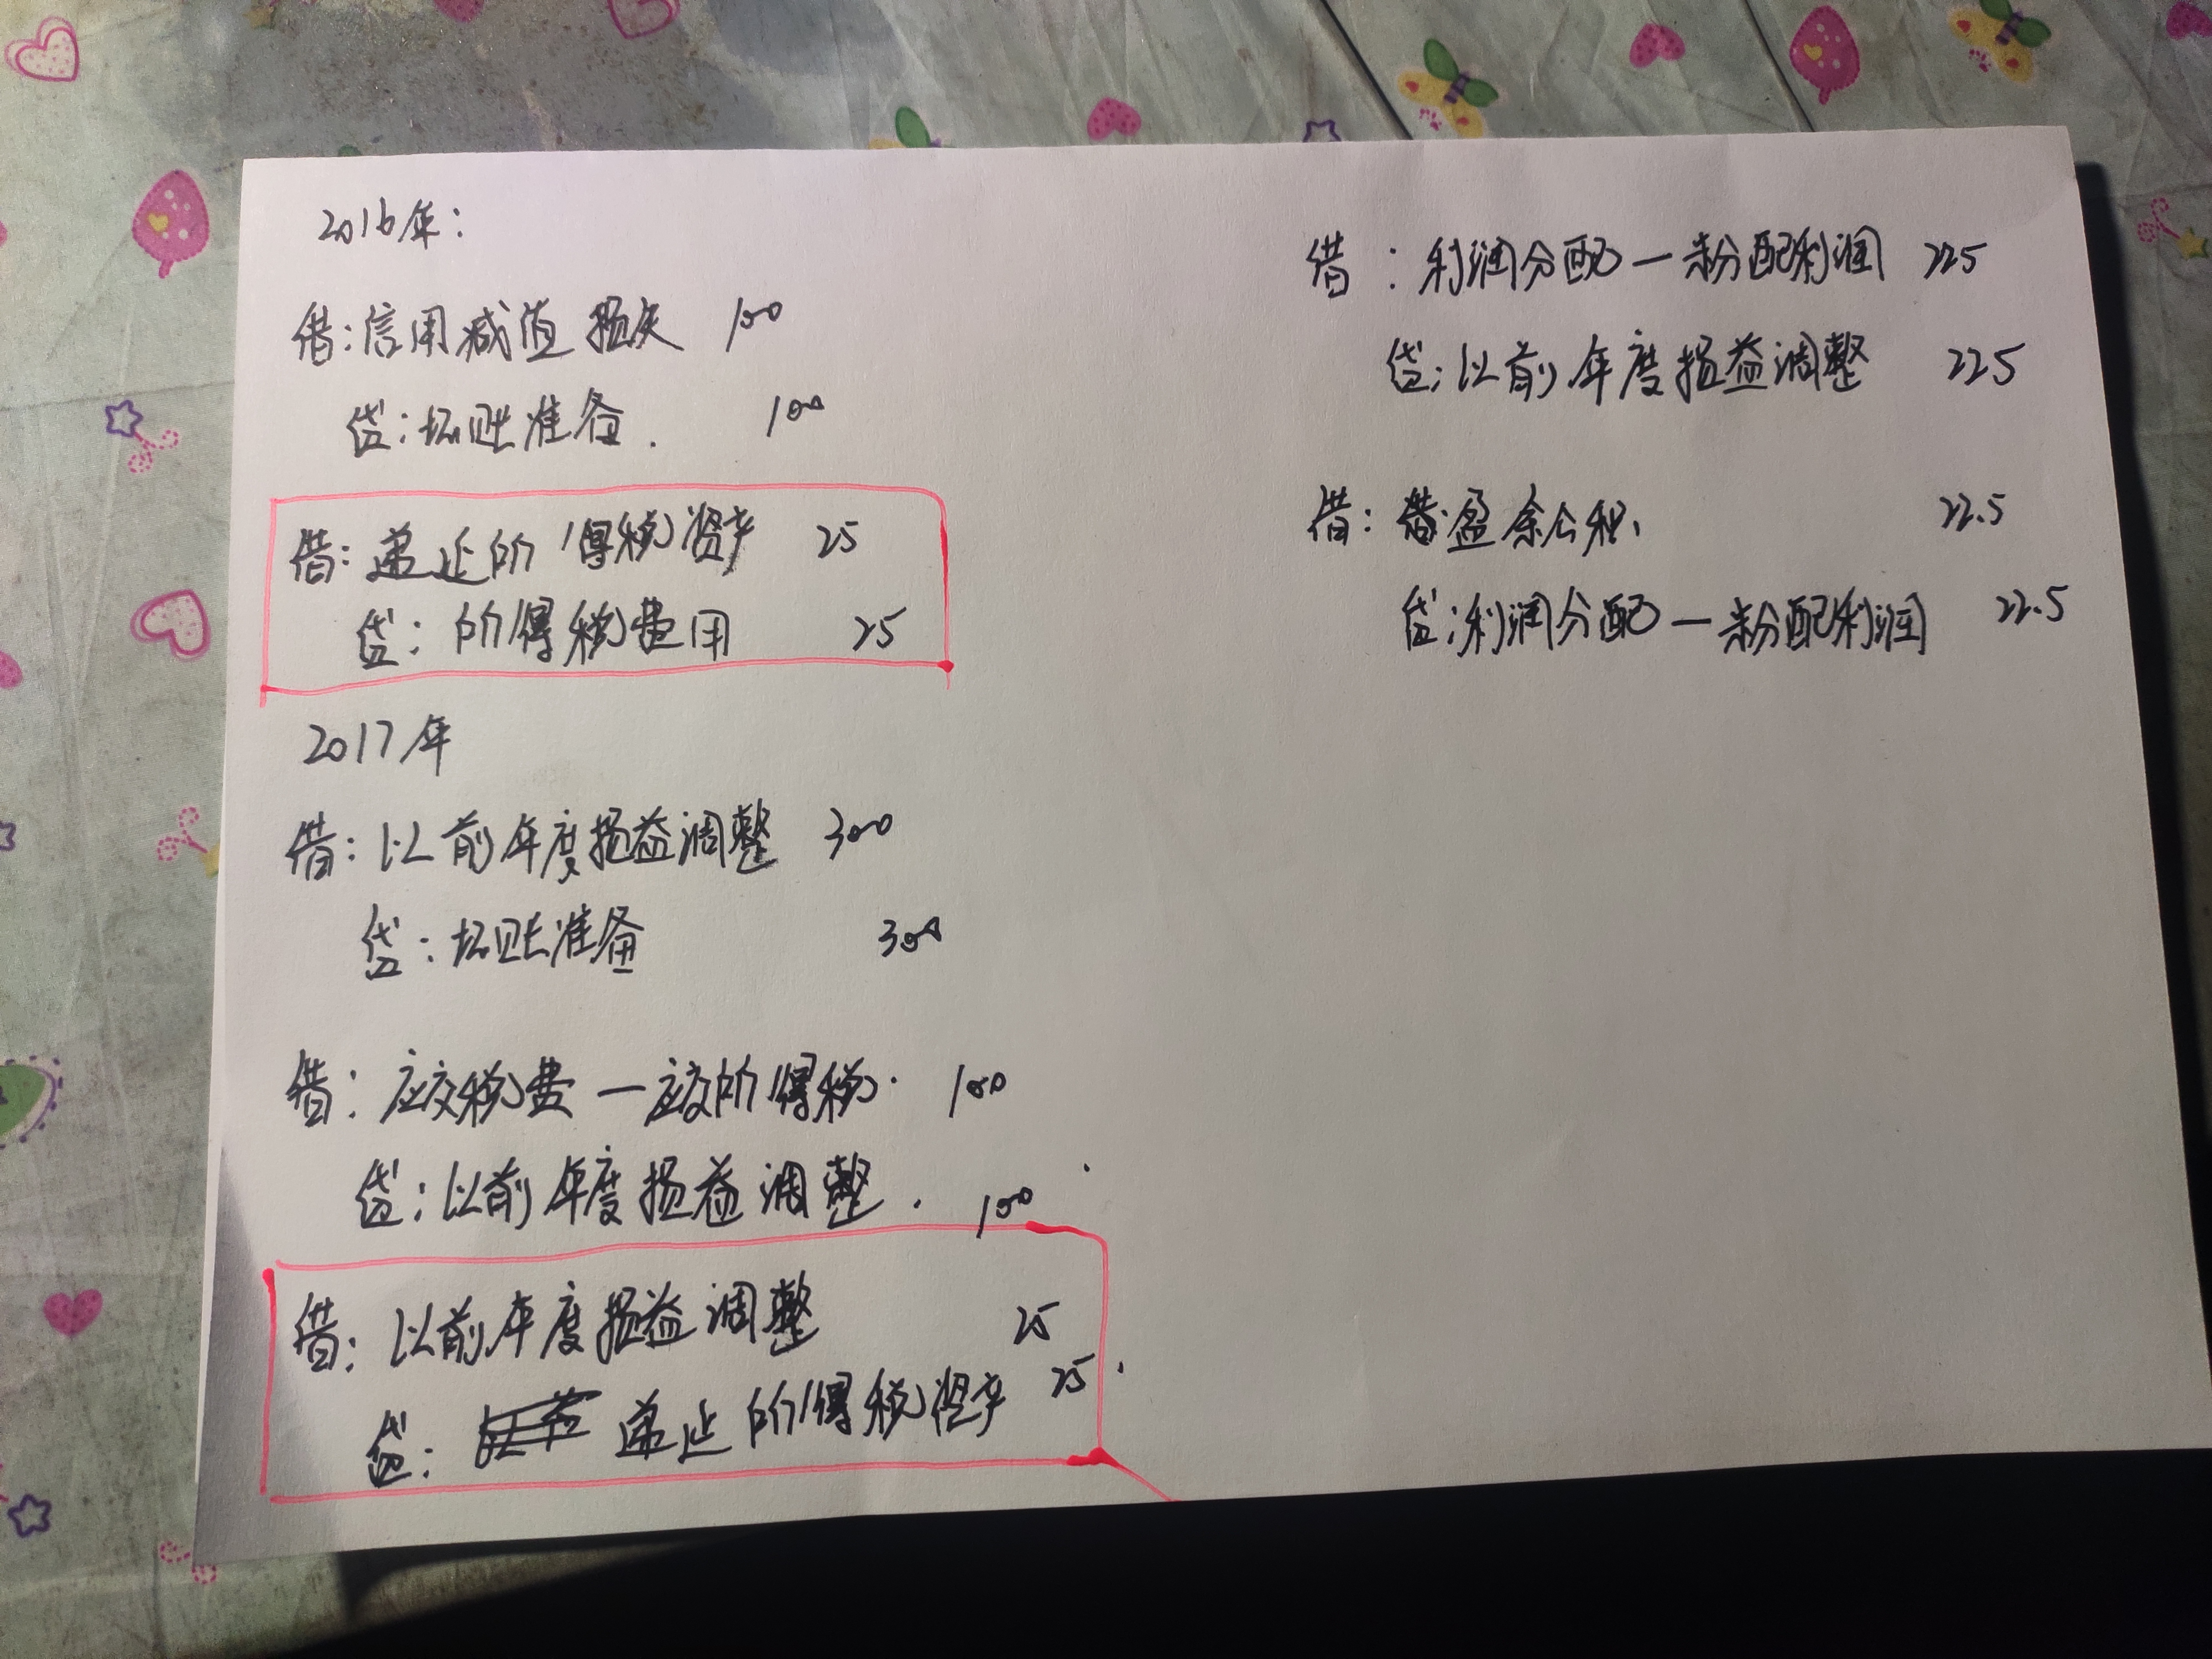 2016年:
借:信用减值损失 100
贷:坏账准备. 100
借:递延所得税资产 25
贷:所得税费用 25
2017年
借:以前年度损益调整 300
贷:坏账准备 300
借:应交税费—应交所得税. 100
贷:以前年度损益调整. 100
借:以前年度损益调整 25
贷: 递延所得税资产 25.
借:利润分配—未分配利润 225
贷:以前年度损益调整 225
借:盈余公积 22.5
贷:利润分配—未分配利润 22.5